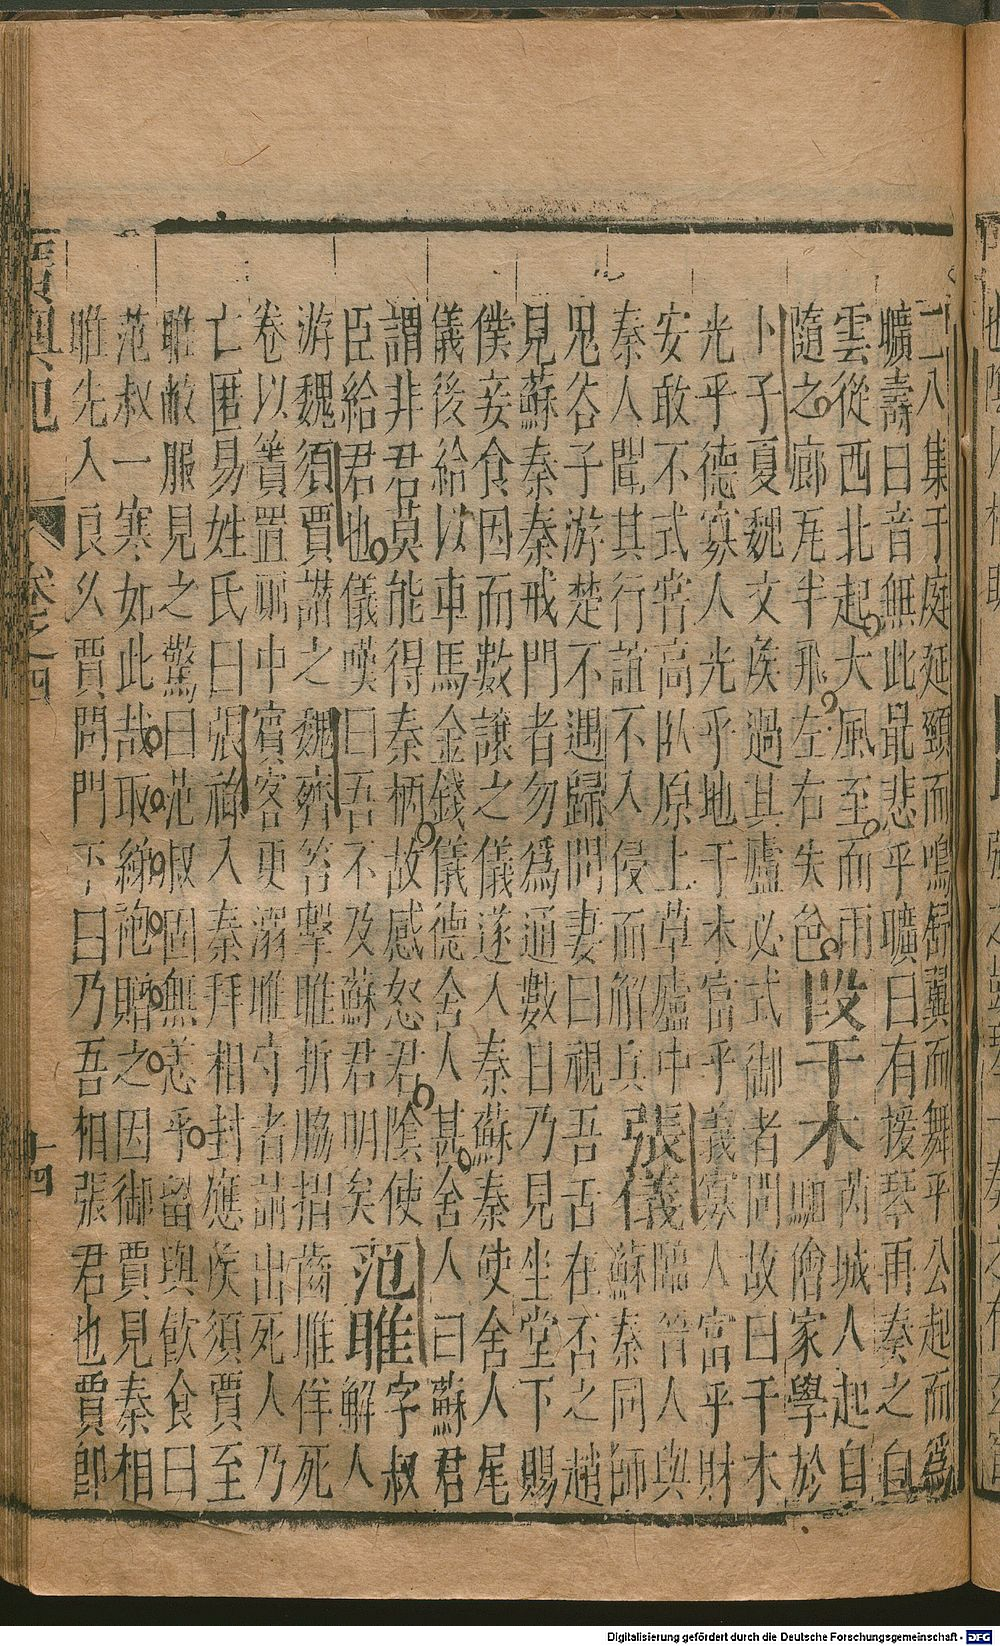 二八集于庭延頸而鳴舒翼而舞平公起而爲
曠壽曰音無此最悲乎曠曰有援琴再奏之白
雲從西北起大風至而雨
隨之廊瓦半飛左右失色段干木芮城人起自
駔儈家學於
卜子夏魏文矦過其廬必式御者問故曰干木
光乎德寡人光乎地干木富乎義寡人富乎財
安敢不式嘗高臥原上草廬中臨晉人與
秦人聞其行誼不入侵而解兵張儀蘇秦同師
鬼谷子游楚不遇歸問妻曰視吾舌在否之趙
見蘇秦秦戒門者勿爲通數日乃見坐堂下賜
僕妾食因而數讓之儀遂入秦蘇秦使舍人尾
儀後給以車馬金錢儀德舍人甚舍人曰蘇君
謂非君莫能得秦柄故感怒君陰使
臣給君也儀嘆曰吾不及蘇君明矣范雎字叔
解人
游魏須賈譖之魏齊笞擊雎折脇摺齒雎佯死
卷以簀置厠中賓客更溺雎守者請出死人乃
亡匿易姓氏曰張祿入秦拜相封應矦須賈至
雎敝服見之驚曰范叔固無恙乎留與飲食曰
范叔一寒如此哉取綈袍贈之因御賈見秦相
雎先入良久賈問門下曰乃吾相張君也賈卽
卷之四
十四
Digitalisierung gefördert durch die Deutsche Forschungsgemeinschaft - DFG